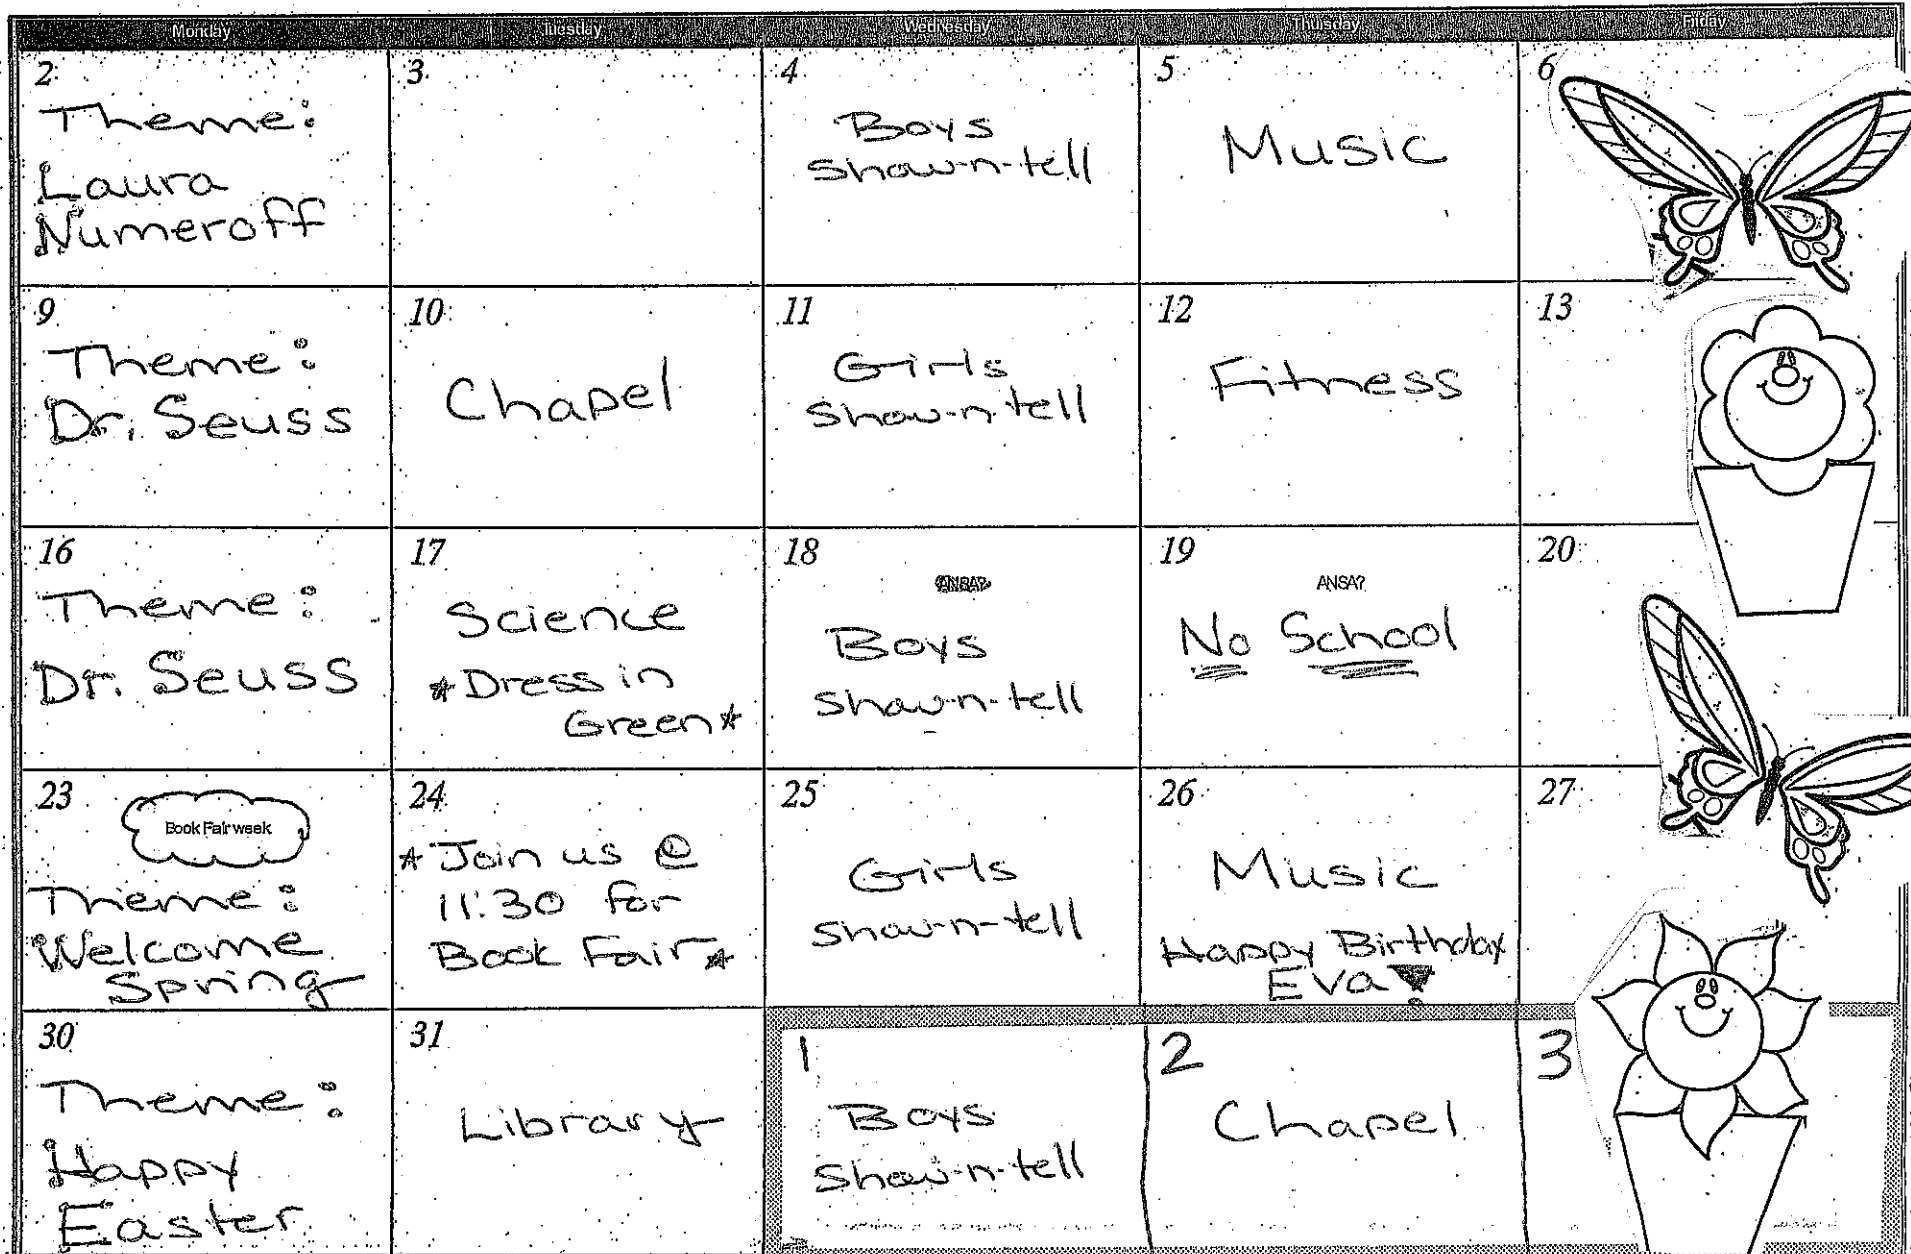 Monday Tuesday Wednesday Thursday Friday
2
Theme:
Laura
Numeroff
3
4
Boys
Show-n-tell
5
Music
6
9
Theme:
Dr. Seuss
10
Chapel
11
Girls
Show-n-tell
12
Fitness
13
16
Theme:
Dr. Seuss
17
Science
*Dress in
Green*
18
ANSA?
Boys
Show-n-tell
19
ANSA?
No School
20
23
Book Fair week
Theme:
Welcome
Spring
24
*Join us @
11:30 for
Book Fair*
25
Girls
Show-n-tell
26
Music
Happy Birthday
Eva!
27
30
Theme:
Happy
Easter
31
Library
1
Boys
Show-n-tell
2
Chapel
3